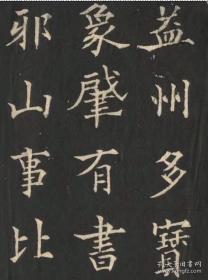 益州多寶
象肇有書
邪山事比